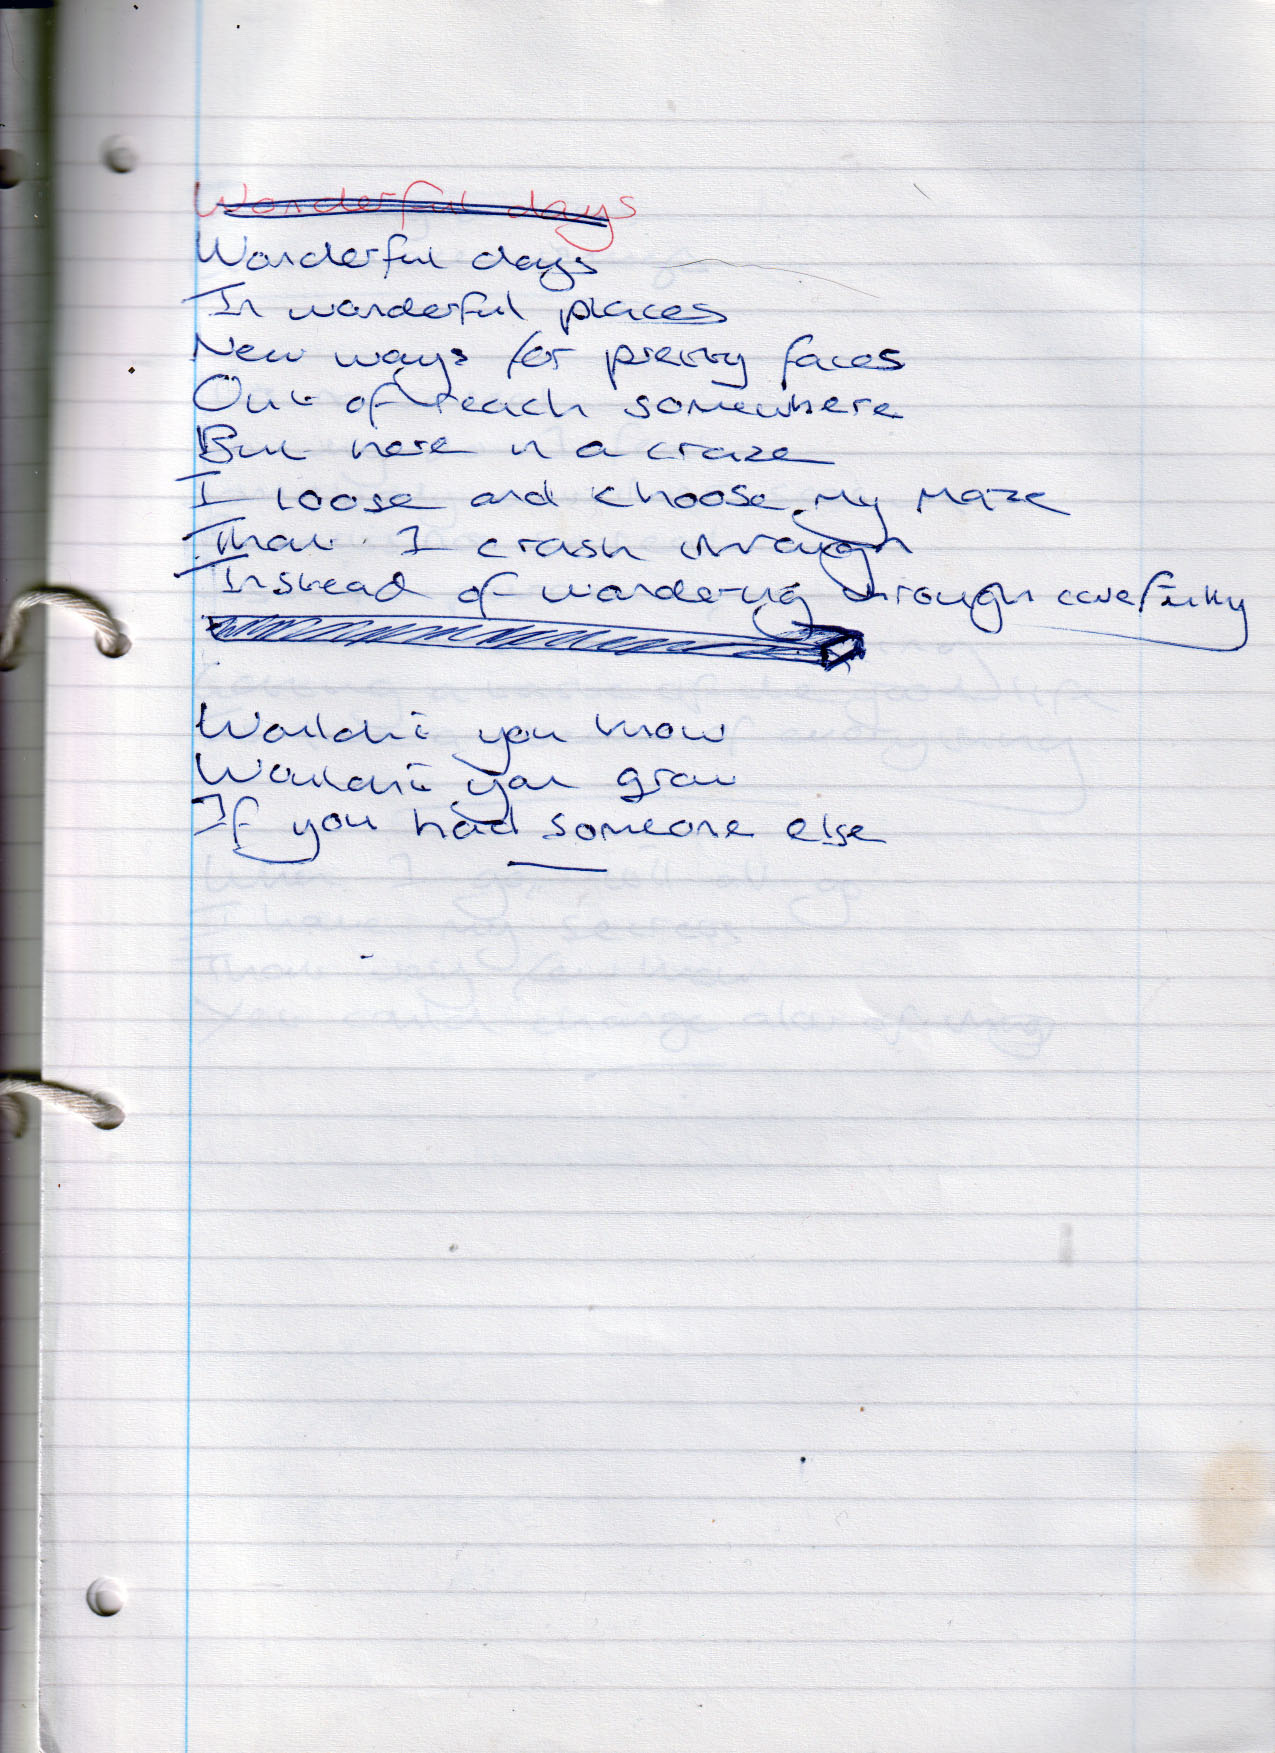 Wonderful days
Wonderful days
In wonderful places
New ways for pretty faces
Out of reach somewhere
But here in a craze
I loose and choose my maze
That I crash through
Instead of wandering through carefully
Wouldn't you know
Wouldn't you grow
If you had someone else